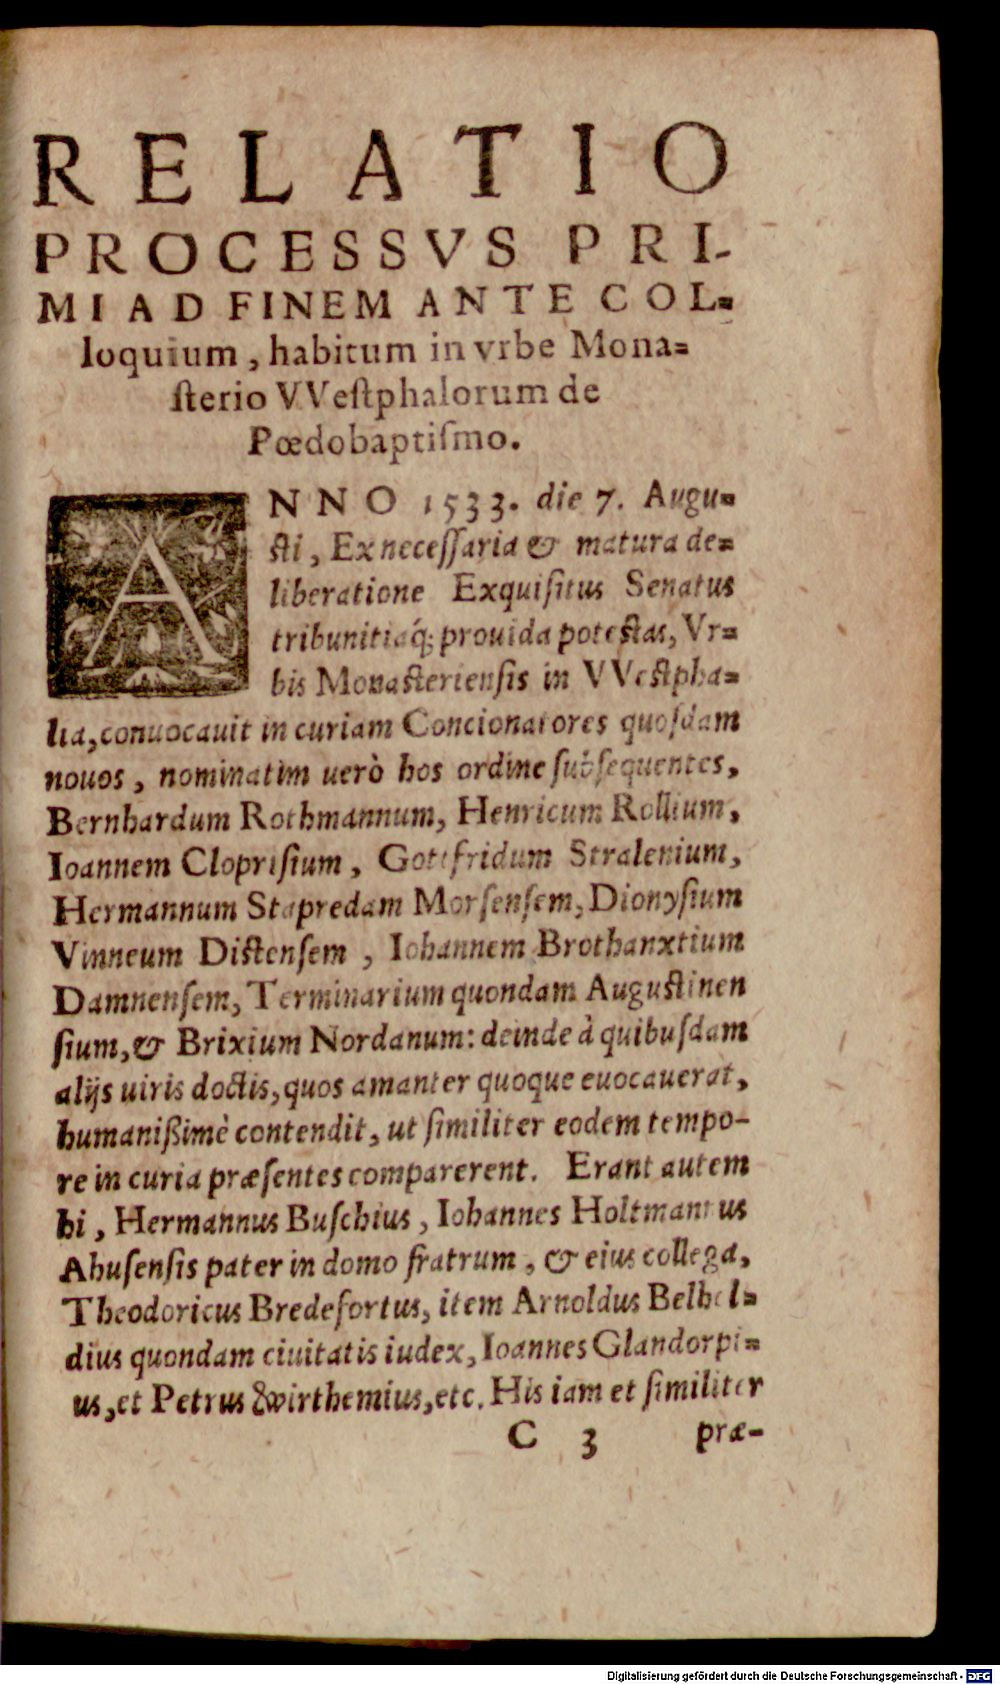 RELATIO
PROCESSVS PRI-
MI AD FINEM ANTE COL=
loquium, habitum in vrbe Mona=
ſterio VVeſtphalorum de
Pœdobaptiſmo.
ANNO 1533. die 7. Augu=
ſti, Ex neceſſaria & matura de=
liberatione Exquiſitus Senatus
tribunitiaq́; prouida poteſtas, Vr=
bis Monaſterienſis in VVeſtpha=
lia, conuocauit in curiam Concionatores quoſdam
nouos, nominatim uerò hos ordine ſubſequentes,
Bernhardum Rothmannum, Henricum Rollium,
Ioannem Clopriſium, Gottfridum Stralenium,
Hermannum Stapredam Morſenſem, Dionyſium
Vinneum Diſtenſem, Iohannem Brothanxtium
Damnenſem, Terminarium quondam Auguſtinen
ſium, & Brixium Nordanum: deinde à quibuſdam
alijs uiris doctis, quos amanter quoque euocauerat,
humanißimè contendit, ut ſimiliter eodem tempo-
re in curia præſentes comparerent. Erant autem
hi, Hermannus Buſchius, Iohannes Holtmannus
Ahuſenſis pater in domo fratrum, & eius collega,
Theodoricus Bredefortus, item Arnoldus Belhel=
dius quondam ciuitatis iudex, Ioannes Glandorpi=
us, et Petrus Zwirthemius, etc. His iam et ſimiliter
C 3 præ=
Digitalisierung gefördert durch die Deutsche Forschungsgemeinschaft - DFG